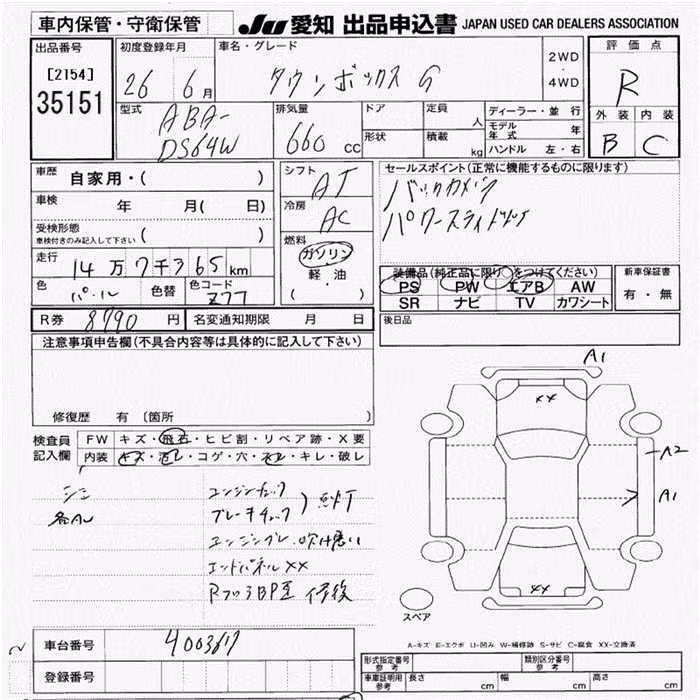 車内保管・守衛保管
JU 愛知 出品申込書 JAPAN USED CAR DEALERS ASSOCIATION
出品番号 初度登録年月 車名・グレード 2WD・4WD 評価点
[2154] 26 6月 タウンボックス G R
35151
型式 ABA-DS64W 排気量 660 cc ドア 形状 定員 人 積載 kg
ディーラー・並行 モデル年式 年 ハンドル 左・右
外装 内装
B C
車歴 自家用・( )
シフト AT
セールスポイント(正常に機能するものに限ります)
車検 年 月( 日)
冷房 AC
バックカメラ
パワースライドドア
受検形態 車検付きのみ記入して下さい ( )
燃料 ガソリン 軽油 ( ・ )
走行 14万7千365km
装備品(純正品に限り○をつけてください) 新車保証書
色 パール 色替 色コード Z7T
PS PW エアB AW 有・無
SR ナビ TV カワシート
R券 8790円 名変通知期限 月 日
後日品
注意事項申告欄(不具合内容等は具体的に記入して下さい)
修復歴 有 〔箇所
検査員記入欄
FW キズ・飛石・ヒビ割・リペア跡・X要
内装 キズ・汚レ・コゲ・穴・スレ・キレ・破レ
シミ エンジンチェック
各AU ブレーキチェック ) 点灯
エンドパネルXX
修復
A1
XX
A2
A1
XX
スペア
A-キズ E-エクボ U-凹み W-補修跡 S-サビ C-腐食 XX-交換済
車台番号 400367
登録番号
形式指定番号 参考 類別区分番号 参考
車庫証明用 参考 長さ cm 幅 cm 高さ cm